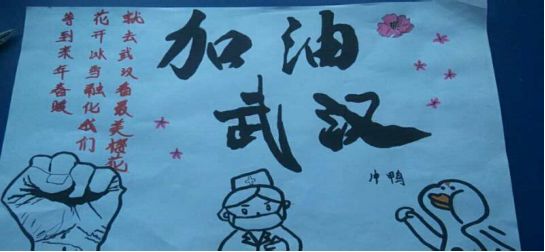 加油
武汉
等到来年春暖
花开冰雪融化我们
就去武汉看最美樱花
冲鸭